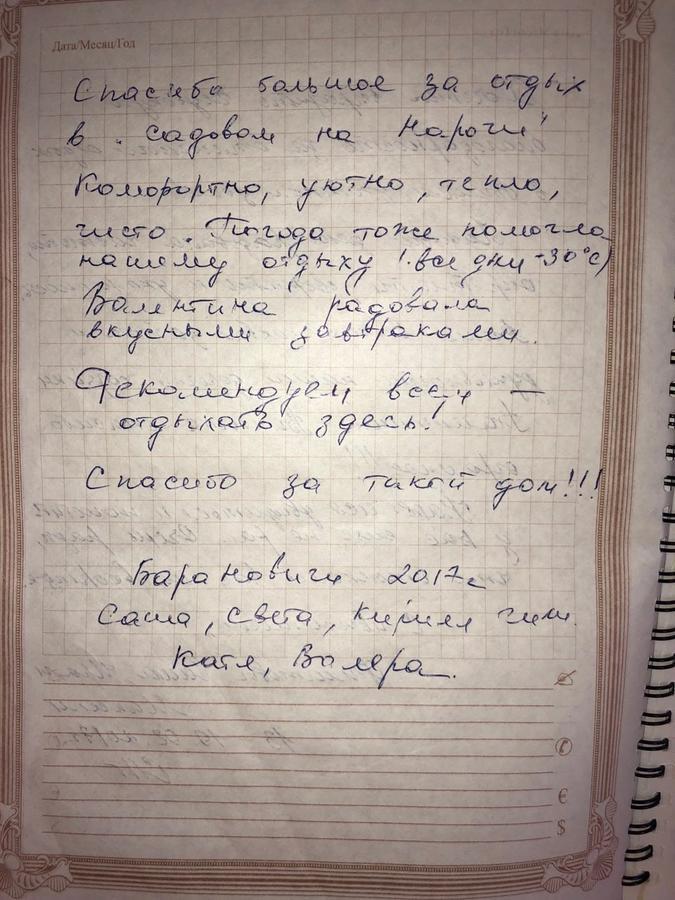 Дата/Месяц/Год
Спасибо большое за отдых
в "Садовом на Нарочи"
Комфортно, уютно, тепло,
чисто. Погода тоже помогла
нашему отдыху (все дни +30°С)
Валентина радовала
вкусными завтраками.
Рекомендуем всем —
отдыхать здесь!
Спасибо за такой дом!!!
Барановичи 2017г
Саша, Света, Кирилл
Катя, Валера.
€
$